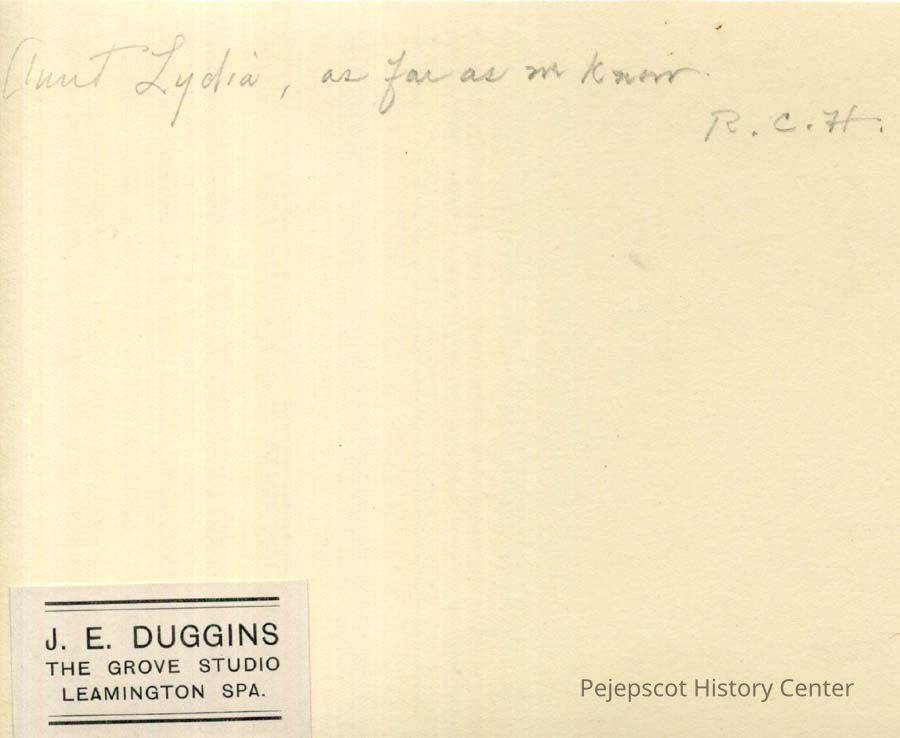 Aunt Lydia, as far as we know.
R. C. H.
J. E. DUGGINS
THE GROVE STUDIO
LEAMINGTON SPA.
Pejepscot History Center